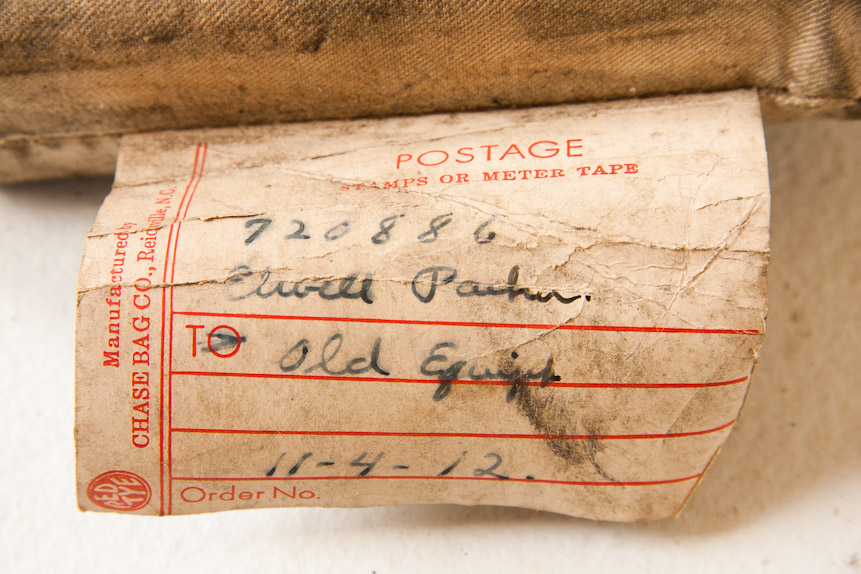 POSTAGE
STAMPS OR METER TAPE
720886
Elwell Parker.
TO
Old Equipt.
11-4-12.
Order No.
Manufactured by
CHASE BAG CO., Reidsville, N.C.